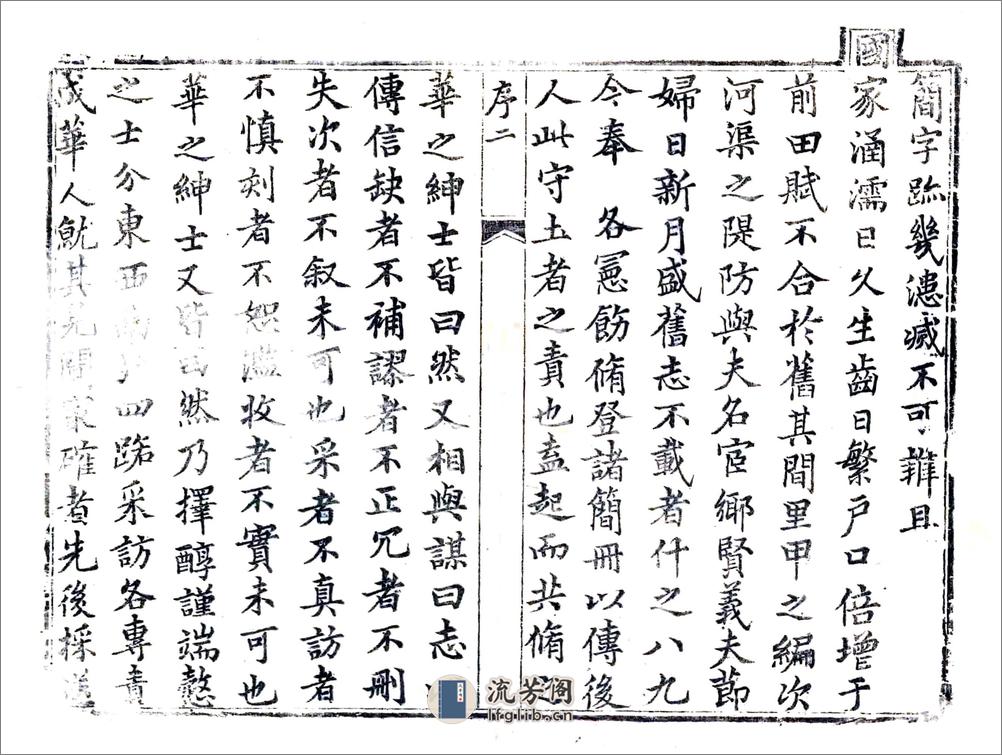 簡字跡幾漶滅不可辨且
國家涵濡日久生齒日繁戶口倍增于
前田賦不合於舊其間里甲之編次
河渠之隄防與夫名宦鄉賢義夫節
婦日新月盛舊志不載者什之八九
今奉 各憲飭脩登諸簡冊以傳後
人此守土者之責也盍起而共脩
序二
華之紳士皆曰然又相與謀曰志
傳信缺者不補謬者不正冗者不刪
失次者不叙未可也采者不真訪者
不慎刻者不恕濫收者不實未可也
華之紳士又皆曰然乃擇醇謹端愨
之士分東西四路采訪各專責
成華人就其見聞確者先後採
流芳阁
lfglib.cn